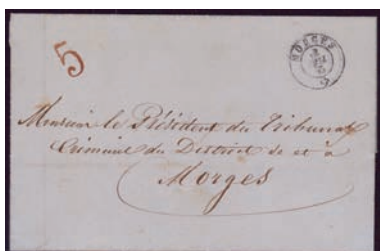 5
MORGES
Monsieur le Président du Tribunal
Criminel du District de et à
Morges